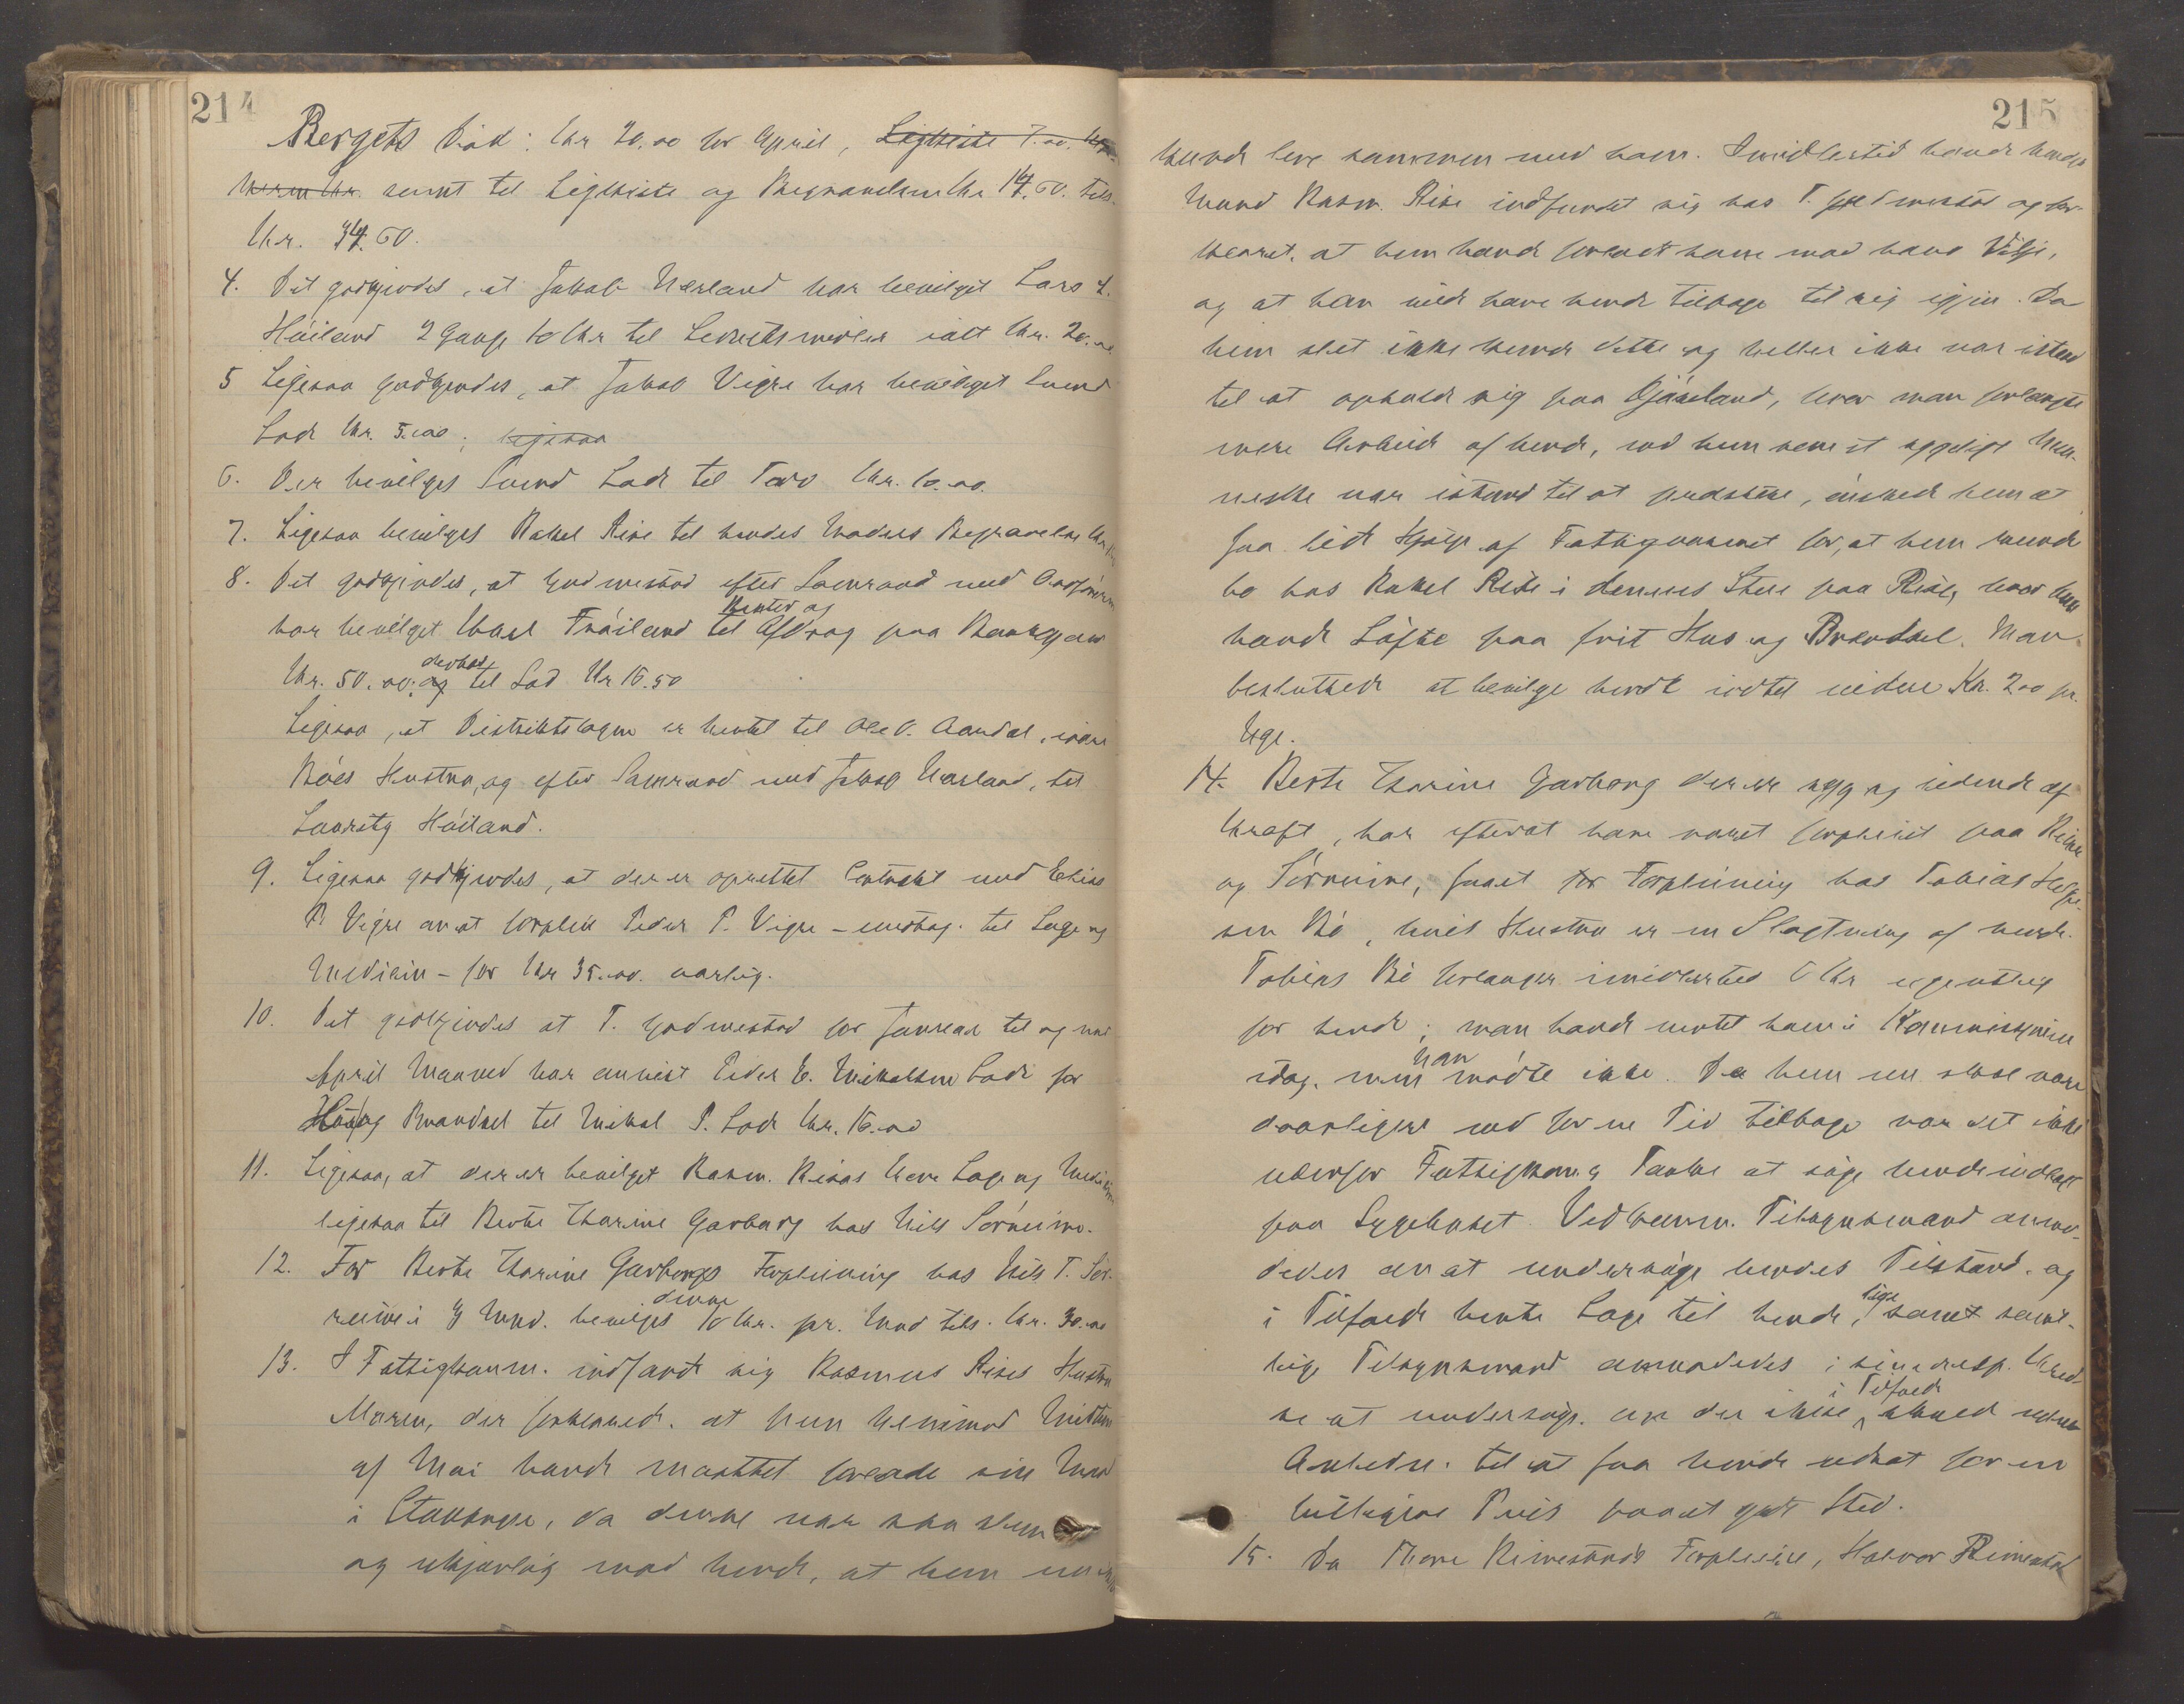 214
Bergets Død: Kr 20.00 for April, Ligkiste 7.00.
samt til Ligkiste og Begravelsen Kr 14.60. tils.
Kr. 34.60.
4. Det godkjendes, at Jakob Nærland har bevilget Lars
Høiland 2 Gange 10 Kr til Levnetsmidler ialt Kr. 20.00
5 Ligesaa godkjendes, at Jakob Vigre har bevilget Svend
Lode Kr. 5.00; ligesaa
6. Der bevilges Svend Lode til Torv Kr. 10.00.
7. Ligesaa bevilges Rakel Rise til hendes Moders Begravelse Kr
8. Det godkjendes, at Godmestad efter Samraad med Ordføreren
har bevilget Karl Tråiland til Renter og Afdrag paa Bankgjæld
Kr. 50.00. og derhos til Sæd Kr 16.50
Ligesaa, at Distriktslægen er hentet til Ole O. Aandal,
Bøes Hustru, og efter Samraad med Jakob Nærland, til
Lauritz Høiland.
9. Ligesaa godkjendes, at der er oprettet Contrakt med Elias
P. Vigre om at forpleie Peder P. Vigre – undtag. til Læge og
Medicin – for Kr 35.00. aarlig.
10. Det godkjendes at T. Godmestad for Januar til og med
April Maaned har anvist Peder E. Mikalsen Lode for
Hus og Brændsel til Mikal P. Lode Kr. 16.00
11. Ligesaa, at der er bevilget Rasm. Rises Kone Læge og Medicin
ligesaa til Berte Thorine Garborg hos Nils Sørreime.
12. For Berte Thorine Garborgs Forpleining hos Nils T. Sør-
reime i 3 Mnd. bevilges denne 10 Kr. pr. Mnd tils. Kr. 30.00
13. I Fattigkomm. indfandt sig Rasmus Rises Hustru
Maren, der forklarede. at hun henimod Midten
af Mai havde maattet forlade sin Mand
i Stavanger, da denne var saa slem
og ukjærlig mod hende, at hun
215
kunde leve sammen med ham. Imidlertid havde hendes
Mand Rasm. Rise indfundet sig hos T. Godmestad og for-
klaret. at hun havde forladt ham mod hans Vilje,
og at han vilde have hende tilbage til sig igjen. Da
hun slet ikke kunde dette og heller ikke var istand
til at opholde sig paa Gjåseland, hvor man forlangte
mere Arbeide af hende, end hun som et sygeligt Men-
neske var istand til at præstere, ønskede hun at
faa lidt Hjælp af Fattigvæsenet for, at hun kunde
bo hos Rakel Rise i dennes Stue paa Rise, hvor hun
havde Løfte paa frit Hus og Brændsel. Man
besluttede at bevilge hende indtil videre Kr. 2.00 pr.
Uge.
14. Berte Thorine Garborg der er syg og lidende af
Kraft, har efterat have været forpleiet paa
og Sørreime, faaet for Forpleining hos Tobias
sen Bø, hvis Hustru er en Slægtning af hende.
Tobias Bø forlanger imidlertid 6 Kr ugentlig
for hende; man havde ventet ham i Kommissionen
idag. men han mødte ikke. Da hun nu skal være
daarligere end for en Tid tilbage var det ikke
udenfor Fattigkom.s Tanke at søge hende indlagt
paa Sygehuset. Vedkomm. Tilsynsmand anmo-
dedes om at undersøge hendes Tilstand. og
i Tilfælde hente Læge til hende, ligesom samt-
lige Tilsynsmænd anmodedes i sine resp. Kred-
se at undersøge. om der ikke i Tilfælde skulde være
Anledn. til at faa hende udsat for en
billigere Pris paa et godt Sted.
15. Da Thore Rimestads Forpleier, Halvor Rimestad